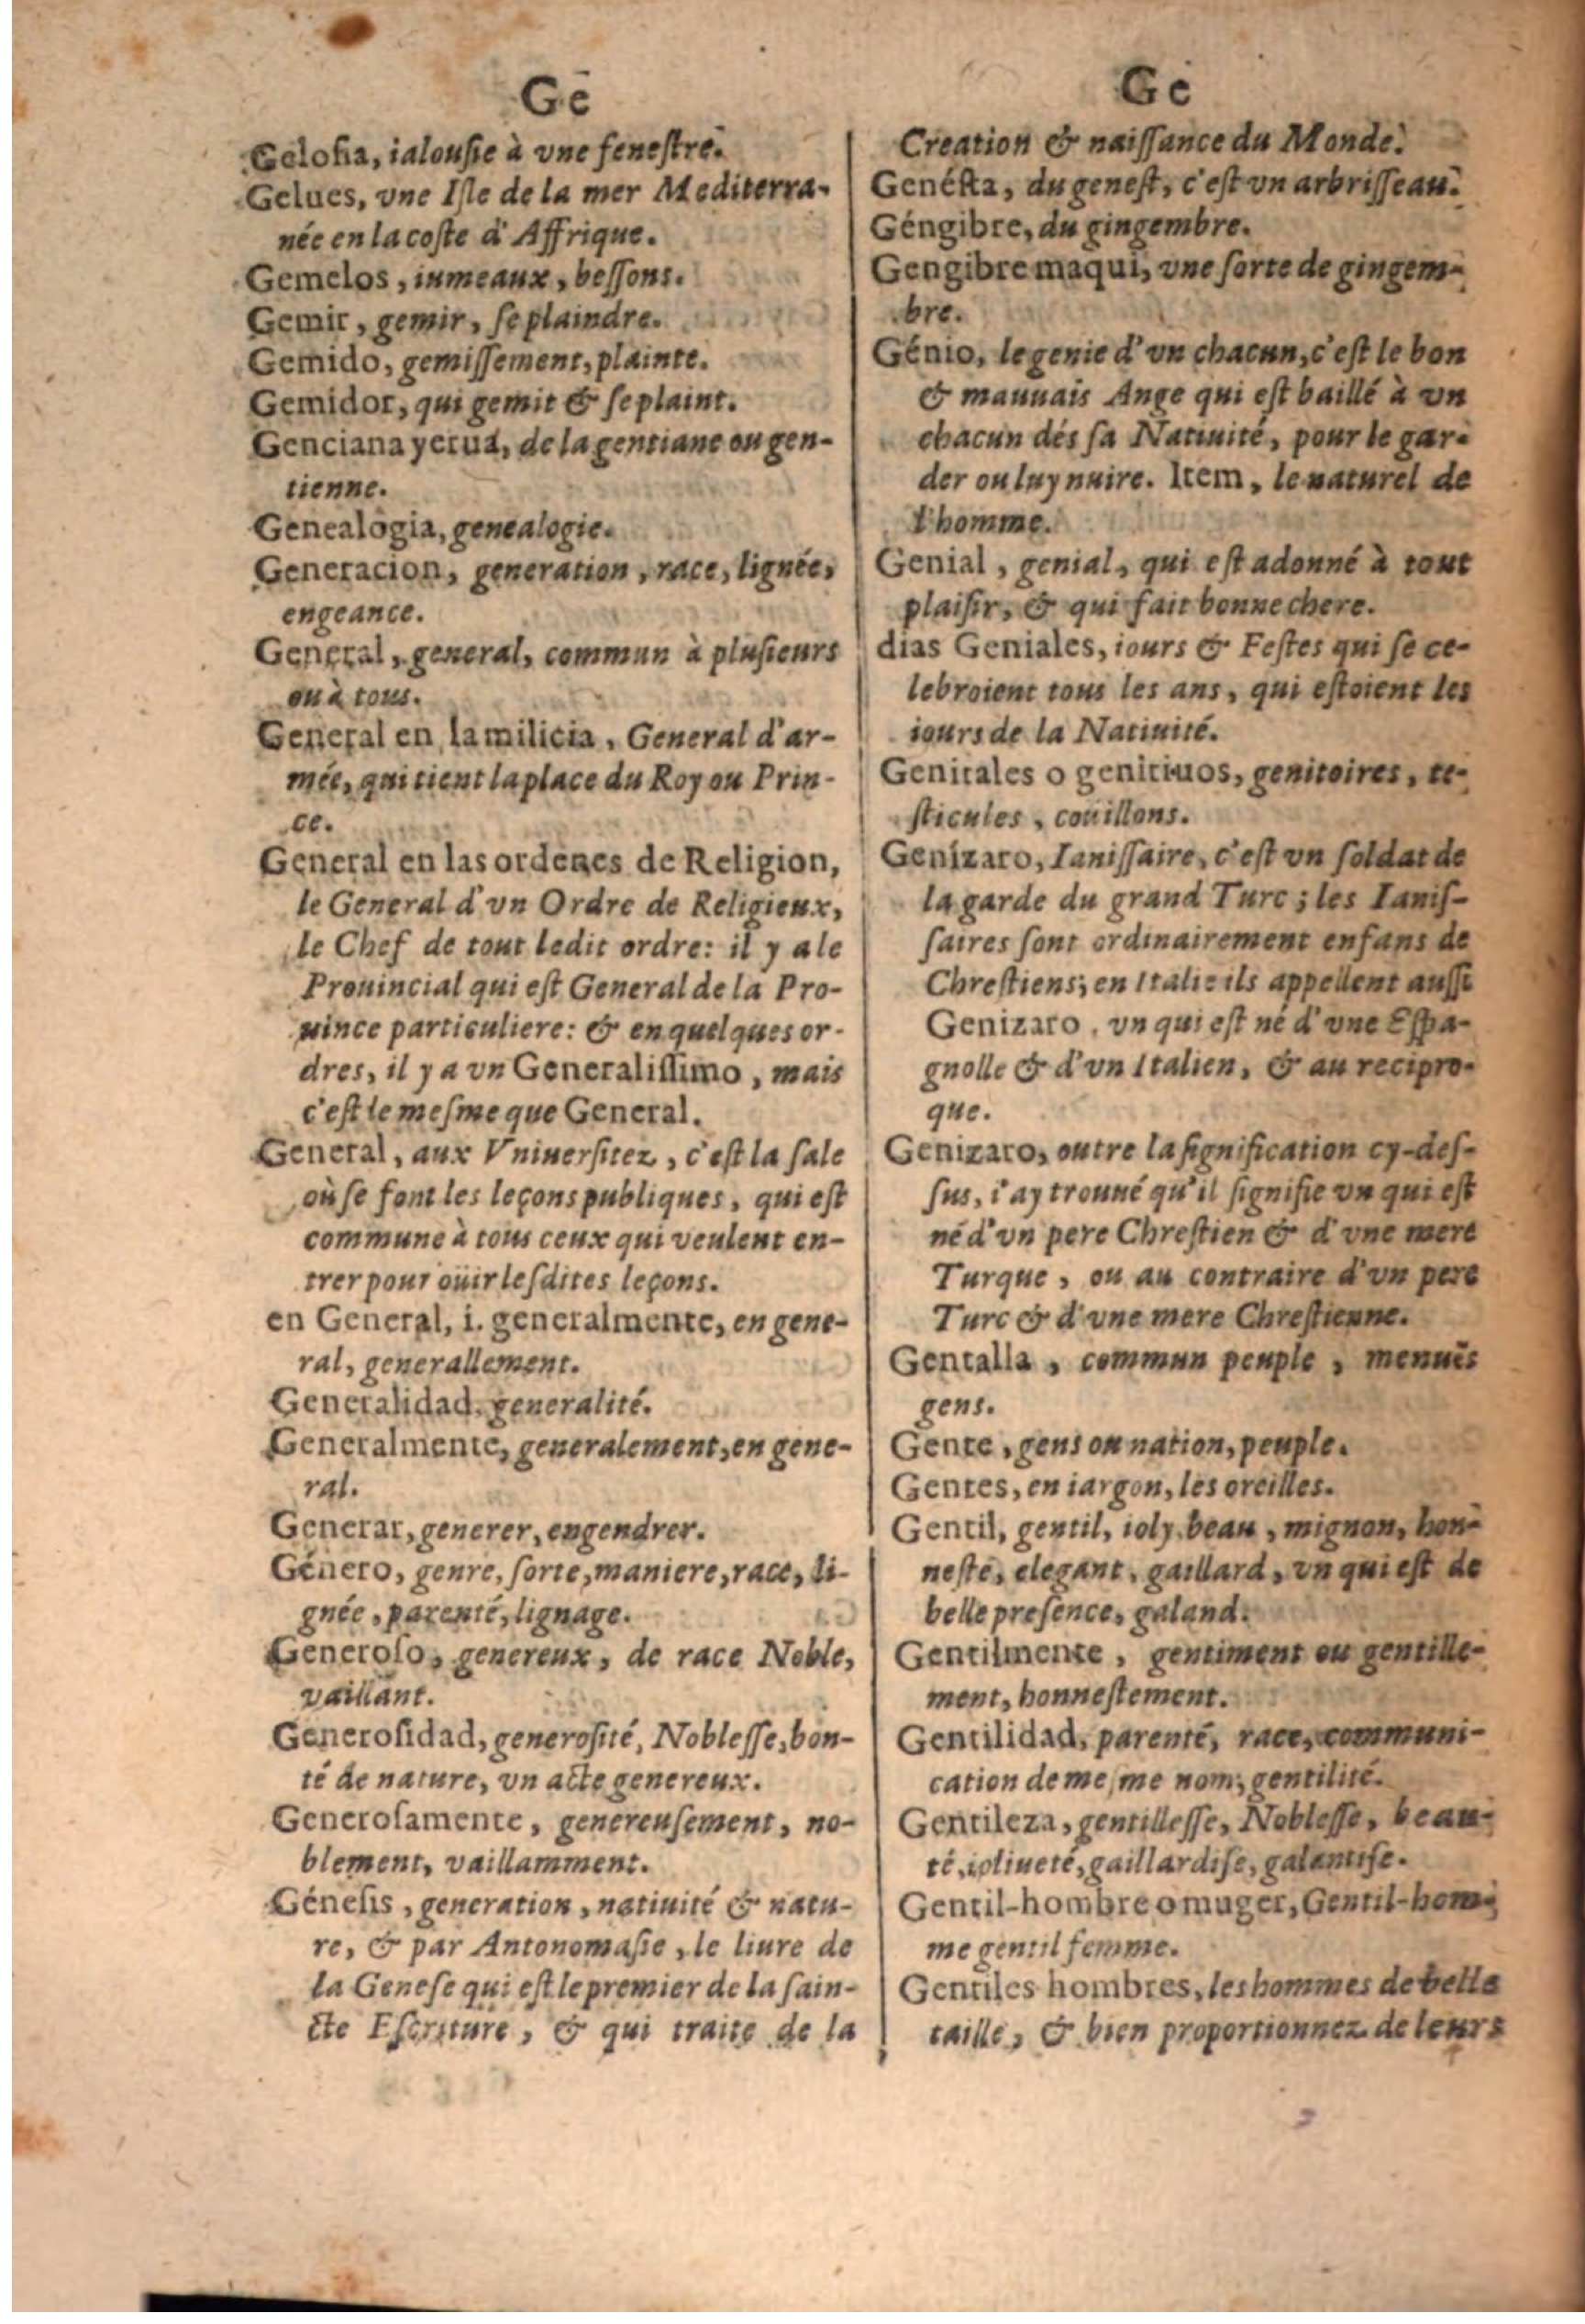 Ge
Gelosia, ialousie à vne fenestre.
Gelues, vne Isle de la mer Mediterra-
née en la coste d'Affrique.
Gemelos, iumeaux, bessons.
Gemir, gemir, se plaindre.
Gemido, gemissement, plainte.
Gemidor, qui gemit & se plaint.
Genciana yerua, de la gentiane ou gen-
tienne.
Genealogia, genealogie.
Generacion, generation, race, lignée,
engeance.
General, general, commun à plusieurs
ou à tous.
General en la milicia, General d'ar-
mée, qui tient la place du Roy ou Prin-
ce.
General en las ordenes de Religion,
le General d'vn Ordre de Religieux,
le Chef de tout ledit ordre: il y a le
Prouincial qui est General de la Pro-
uince particuliere: & en quelques or-
dres, il y a vn Generalissimo, mais
c'est le mesme que General.
General, aux Vniuersitez, c'est la sale
où se font les leçons publiques, qui est
commune à tous ceux qui veulent en-
trer pour oüir lesdites leçons.
en General, i. generalmente, en gene-
ral, generallement.
Generalidad, generalité.
Generalmente, generalement, en gene-
ral.
Generar, generer, engendrer.
Género, genre, sorte, maniere, race, li-
gnée, parenté, lignage.
Generoso, genereux, de race Noble,
vaillant.
Generosidad, generosité, Noblesse, bon-
té de nature, vn acte genereux.
Generosamente, genereusement, no-
blement, vaillamment.
Génesis, generation, natiuité & natu-
re, & par Antonomasie, le liure de
la Genese qui est le premier de la sain-
cte Escriture, & qui traite de la
Ge
Creation & naissance du Monde.
Genésta, du genest, c'est vn arbrisseau.
Géngibre, du gingembre.
Gengibre maqui, vne sorte de gingem-
bre.
Génio, le genie d'vn chacun, c'est le bon
& mauuais Ange qui est baillé à vn
chacun dés sa Natiuité, pour le gar-
der ou luy nuire. Item, le naturel de
l'homme.
Genial, genial, qui est adonné à tout
plaisir, & qui fait bonne chere.
dias Geniales, iours & Festes qui se ce-
lebroient tous les ans, qui estoient les
iours de la Natiuité.
Genitales o genitiuos, genitoires, te-
sticules, coüillons.
Genízaro, Ianissaire, c'est vn soldat de
la garde du grand Turc; les Ianis-
saires sont ordinairement enfans de
Chrestiens; en Italie ils appellent aussi
Genizaro, vn qui est né d'vne Espa-
gnolle & d'vn Italien, & au recipro-
que.
Genizaro, outre la signification cy-des-
sus, i'ay trouué qu'il signifie vn qui est
né d'vn pere Chrestien & d'vne mere
Turque, ou au contraire d'vn pere
Turc & d'vne mere Chrestienne.
Gentalla, commun peuple, menuës
gens.
Gente, gens ou nation, peuple.
Gentes, en iargon, les oreilles.
Gentil, gentil, ioly, beau, mignon, hon-
neste, elegant, gaillard, vn qui est de
belle presence, galand.
Gentilmente, gentiment ou gentille-
ment, honnestement.
Gentilidad, parenté, race, communi-
cation de mesme nom, gentilité.
Gentileza, gentillesse, Noblesse, beau-
té, ioliueté, gaillardise, galantise.
Gentil-hombre o muger, Gentil-hom-
me gentil femme.
Gentiles hombres, les hommes de belle
taille, & bien proportionnez de leurs